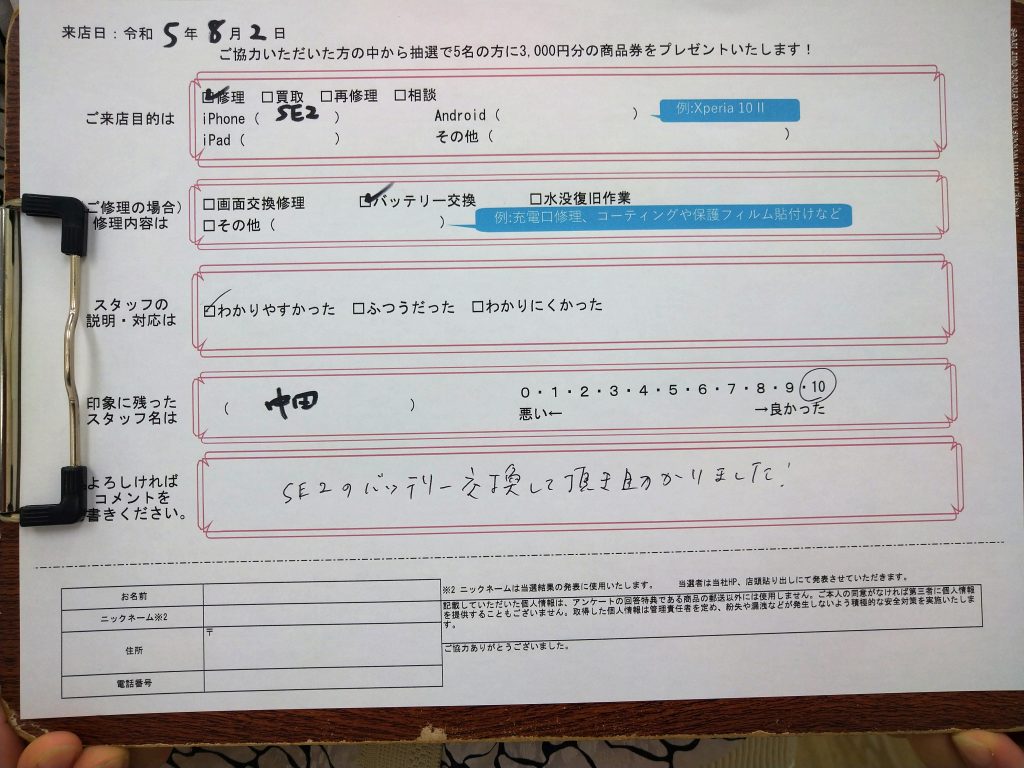 来店日：令和 5 年 8 月 2 日
ご協力いただいた方の中から抽選で5名の方に3,000円分の商品券をプレゼントいたします！
ご来店目的は
☑修理 □買取 □再修理 □相談
iPhone（ SE2 ） Android（ ） 例:Xperia 10 II
iPad（ ） その他（ ）
ご修理の場合）
修理内容は
□画面交換修理 ☑バッテリー交換 □水没復旧作業
□その他（ ） 例:充電口修理、コーティングや保護フィルム貼付けなど
スタッフの
説明・対応は
☑わかりやすかった □ふつうだった □わかりにくかった
印象に残った
スタッフ名は
（ 中田 ） 0・1・2・3・4・5・6・7・8・9・10
悪い← →良かった
よろしければ
コメントを
書きください。
SE2のバッテリー交換して頂き助かりました！
お名前
ニックネーム※2
住所 〒
電話番号
※2 ニックネームは当選結果の発表に使用いたします。 当選者は当社HP、店頭貼り出しにて発表させていただきます。
記載していただいた個人情報は、アンケートの回答特典である商品の郵送以外には使用しません。ご本人の同意がなければ第三者に個人情報
を提供することもございません。取得した個人情報は管理責任者を定め、紛失や漏洩などが発生しないよう積極的な安全対策を実施いたしま
す。
ご協力ありがとうございました。